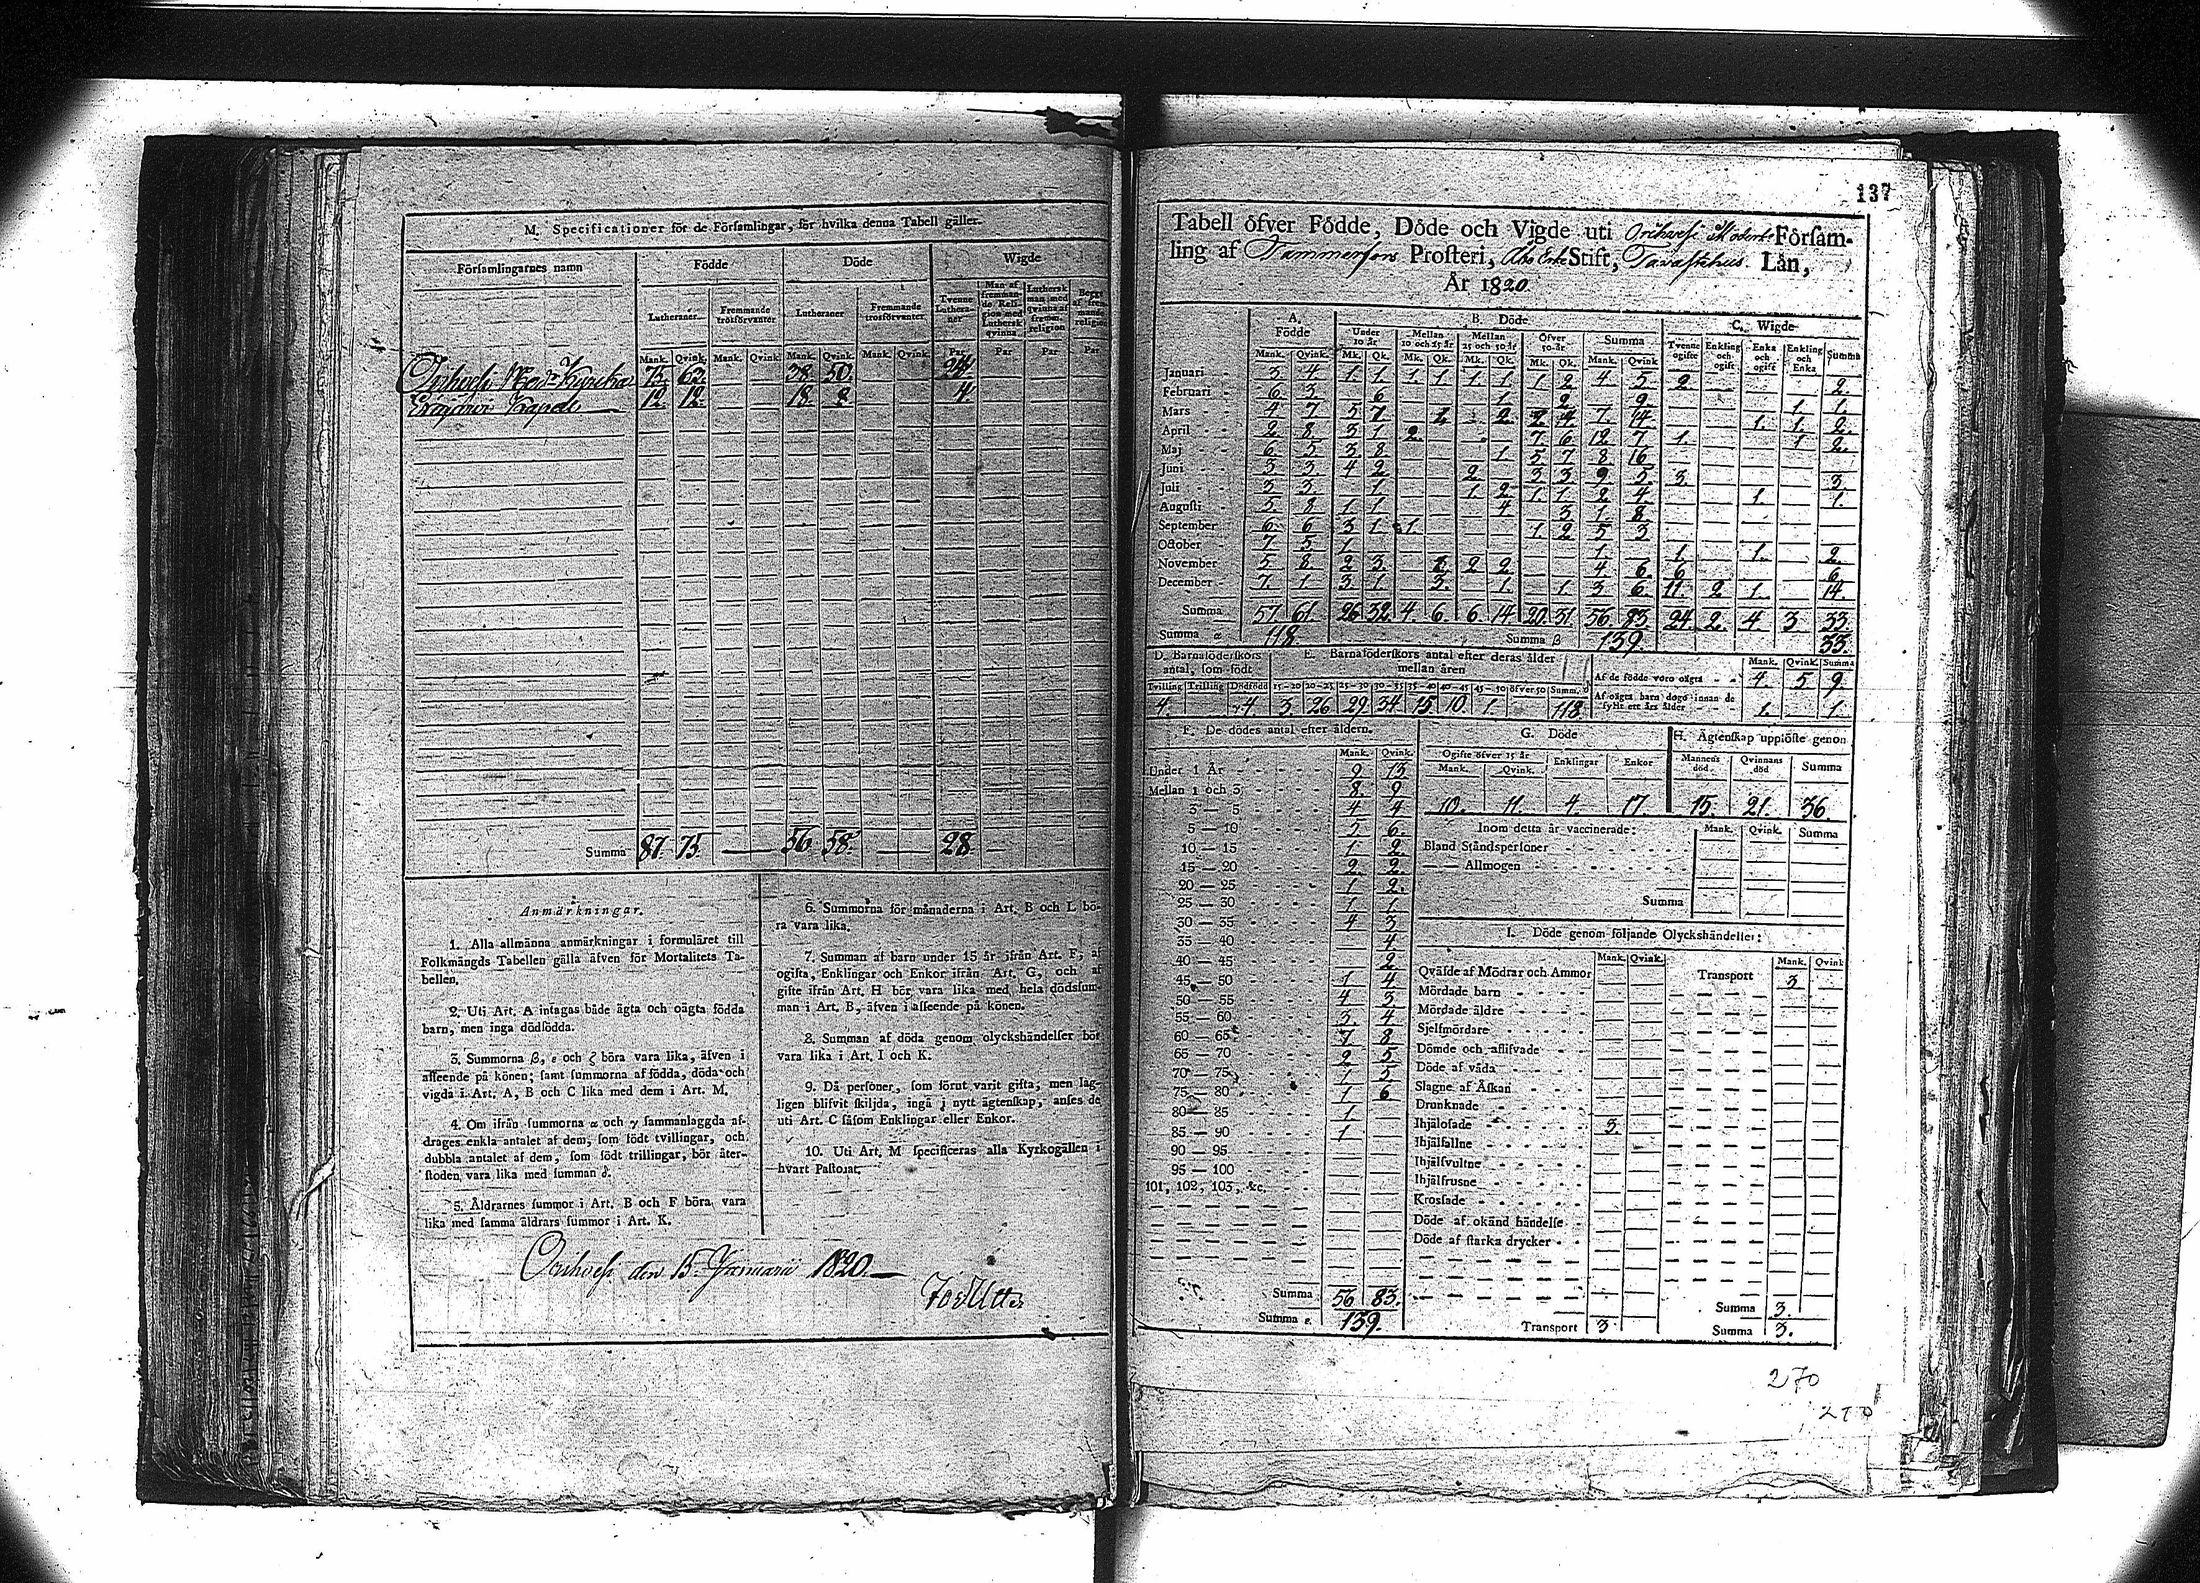 M. Specificationer för de Församlingar, för hvilka denna Tabell gäller.
Församlingarnes namn Födde Döde Wigde
Lutheraner Fremmande trosförvanter Lutheraner Fremmande trosförvanter Tvenne Lutheraner Man af fremmande Religion med Luthersk qvinna Luthersk man med qvinna af fremm. religion
Mank. Qvink. Mank. Qvink. Mank. Qvink. Mank. Qvink. Par Par Par
Orihvesi Mod. Kyrcka 75 63 38 50 24
Erajärvi Kapell 12. 12. 18. 8 4.
Summa 87. 75. 56 58. 28.
Anmärkningar.
1. Alla allmänna anmärkningar i formuläret till
Folkmängds Tabellen gälla äfven för Mortalitets Ta-
bellen.
2. Uti Art. A intagas både ägta och oägta födda
barn, men inga dödfödda.
3. Summorna β, ε och ζ böra vara lika, äfven i
afseende på könen; samt summorna af födda, döda och
vigda i Art. A, B och C lika med dem i Art. M.
4. Om ifrån summorna α och γ sammanlaggda af-
drages enkla antalet af dem, som födt tvillingar, och
dubbla antalet af dem, som födt trillingar, bör åter-
stoden vara lika med summan δ.
5. Åldrarnes summor i Art. B och F böra vara
lika med samma åldrars summor i Art. K.
6. Summorna för månaderna i Art. B och L bö-
ra vara lika.
7. Summan af barn under 15 år ifrån Art. F, af
ogifta, Enklingar och Enkor ifrån Art. G, och af
gifte ifrån Art. H bör vara lika med hela dödssum-
man i Art. B, äfven i afseende på könen.
8. Summan af döda genom olyckshändelser bör
vara lika i Art. I och K.
9. Då personer, som förut varit gifta, men lag-
ligen blifvit skiljda, ingå i nytt ägtenskap, anses de
uti Art. C såsom Enklingar eller Enkor.
10. Uti Art. M specificeras alla Kyrkogällen i
hvart Pastorat.
Orihvesi den 15 Januari 1820
137
Tabell öfver Födde, Döde och Vigde uti Orihvesi Moderk. Försam-
ling af Tammerfors Prosteri, Åbo Erke Stift, Tavastehus Län,
År 1820
A. Födde B. Döde C. Wigde
Under 10 år Mellan 10 och 25 år Mellan 25 och 50 år Öfver 50 år Summa Tvenne ogifte Enkling och ogift Enka och ogift Enkling och Enka Summa
Mank. Qvink. Mk. Qk. Mk. Qk. Mk. Qk. Mk. Qk. Mank. Qvink.
Januari 3 4 1 1 1 1 1 1 1 2 4 5 2 2.
Februari 6 3 6 1 2 9 1 1.
Mars 4 7 5 7 1 2 2 4 7 14 1 1 2.
April 2 8 3 1 2 7 6 12 7 1 1 2.
Maj 6 5 3 8 1 5 7 8 16
Juni 3 3 4 2 2 3 3 9 5 3 3.
Juli 3 3 1 1 2 1 1 2 4 1 1.
Augusti 5 8 1 1 4 3 1 8
September 6 6 3 1 1 1 2 5 3
October 7 5 1 1 1 1 2.
November 5 8 2 3 1 2 2 4 6 6 6
December 7 1 3 1 3 1 1 3 6 11 2 1 14.
Summa 57. 61. 26 32. 4. 6. 6. 14 20. 31. 56. 83. 24. 2. 4. 3. 33.
Summa α 118. Summa β 139. 33.
D. Barnaföderskors antal, som födt E. Barnaföderskors antal efter deras ålder mellan åren Mank. Qvink. Summa
Tvilling Trilling Dödfödd 15-20 20-25 25-30 30-35 35-40 40-45 45-50 öfver 50 Summ. δ
4. 4. 3. 26 29. 34 15 10. 1. 118
Af de födde voro oägta 4. 5 9.
Af oägta barn dogo innan de fyllt ett års ålder 1. 1.
F. De dödes antal efter åldern.
Mank. Qvink.
Under 1 År 9 13
Mellan 1 och 3 8. 9
3 — 5 4 4
5 — 10 5 6.
10 — 15 1 2.
15 — 20 2 2.
20 — 25 1 2.
25 — 30 1 1
30 — 35 4 3
35 — 40 4.
40 — 45 2.
45 — 50 1 4
50 — 55 4 3
55 — 60 3 4
60 — 65 7 8
65 — 70 2 5
70 — 75 1 5
75 — 80 1 6
80 — 85 1
85 — 90 1
90 — 95
95 — 100
101, 102, 103, &c.
Summa 56 83.
Summa ε. 139.
G. Döde
Ogifte öfver 15 år Enklingar Enkor
Mank. Qvink.
10. 11. 4. 17.
H. Ägtenskap upplöste genom
Mannens död Qvinnans död Summa
15. 21. 36
Inom detta år vaccinerade: Mank. Qvink. Summa
Bland Ståndspersoner
— — Allmogen
Summa
I. Döde genom följande Olyckshändelser:
Mank. Qvink. Mank. Qvink
Qväfde af Mödrar och Ammor Transport 3
Mördade barn
Mördade äldre
Sjelfmördare
Dömde och aflifvade
Döde af våda
Slagne af Åskan
Drunknade
Ihjälosade 3.
Ihjälfallne
Ihjälsvultne
Ihjälfrusne
Krossade
Döde af okänd händelse
Döde af starka drycker
Summa 3.
Transport 3 Summa 3.
270
270